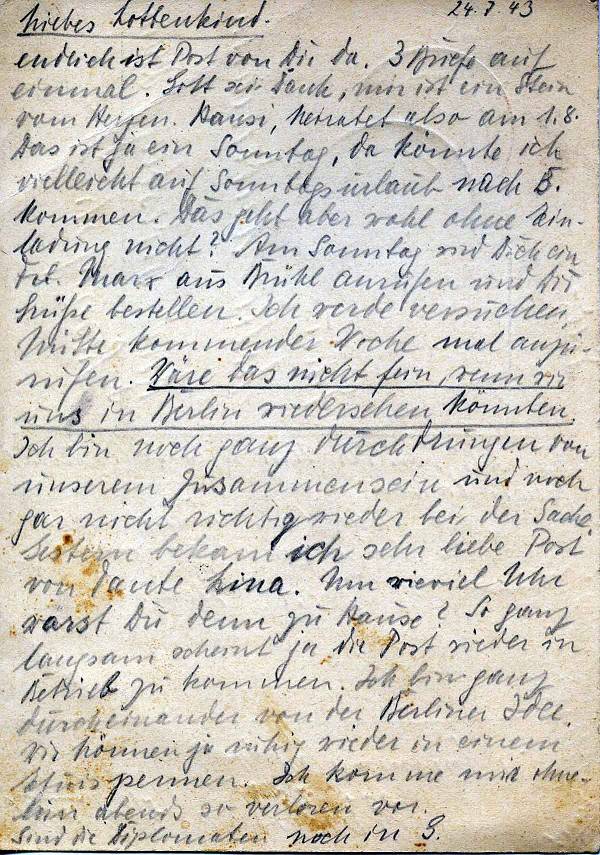 Liebes Lottenkind. 24.7.43
endlich ist Post von Dir da. 3 Briefe auf
einmal. Gott sei Dank, mir ist ein Stein
vom Herzen. Hansi, heiratet also am 1.8.
Das ist ja ein Sonntag, da könnte ich
vielleicht auf Sonntagsurlaub nach B.
kommen. Das geht aber wohl ohne Ein-
ladung nicht? Am Sonntag wird Dich ein
Marx aus Brühl anrufen und Dir
Grüße bestellen. Ich werde versuchen,
Mitte kommender Woche mal anzu-
rufen. Wäre das nicht fein, wenn wir
uns in Berlin wiedersehen könnten.
Ich bin noch ganz durchdrungen von
unserem Zusammensein und noch
gar nicht richtig wieder bei der Sache.
Gestern bekam ich sehr liebe Post
von Tante Lina. Um wieviel Uhr
warst Du denn zu Hause? So ganz
langsam scheint ja die Post wieder in
Betrieb zu kommen. Ich bin ganz
durcheinander von der Berliner Idee.
Wir können ja ruhig wieder in einem
pennen. Ich komme mir ohne-
hin abends so verloren vor.
Sind die Diplomaten noch in G.